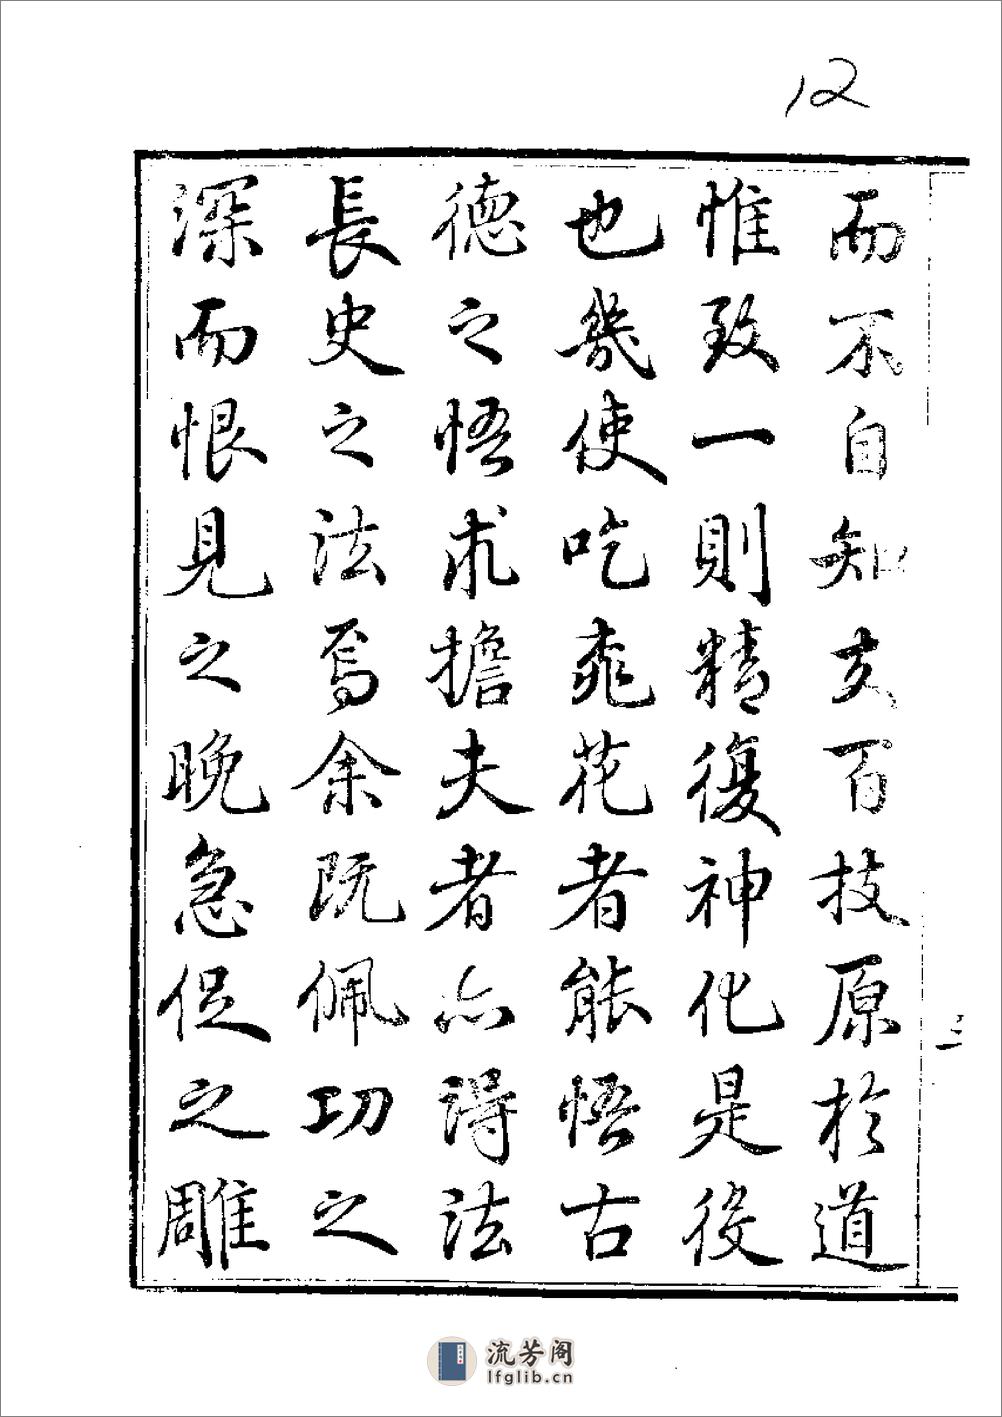 12
而不自知夫百技原於道
惟致一則精復神化是役
也幾使吃桃花者能悟古
德之悟求擔夫者亦得法
長史之法焉余既佩功之
深而恨見之晚急促之雕
三
流芳阁
lfglib.cn